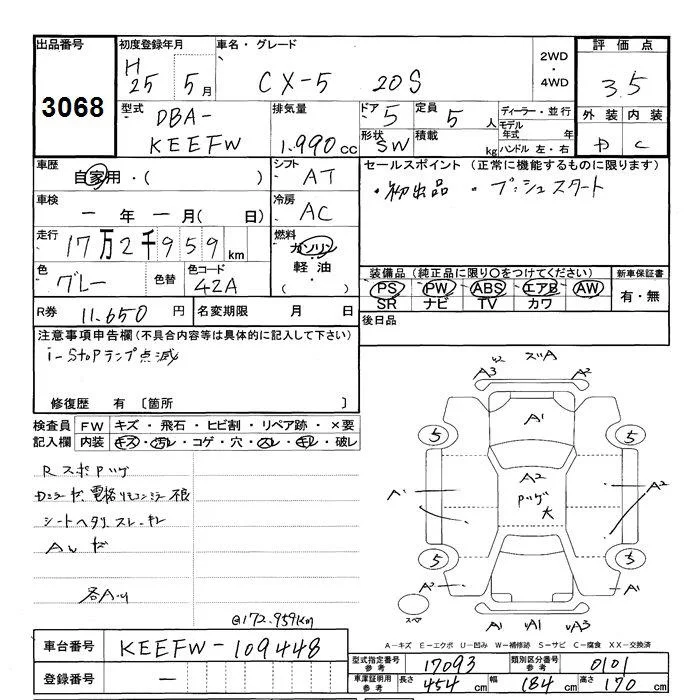 出品番号 初度登録年月 車名・グレード 2WD・4WD 評価点
3068 H25 5月 CX-5 20S 3.5
型式 排気量 ドア 5 定員 5人 ディーラー・並行 外装 内装
DBA-KEEFW 1.990cc 形状 SW 積載 kg モデル年式 年 D C
ハンドル 左・右
車歴 自家用・( ) シフト AT セールスポイント (正常に機能するものに限ります)
・初出品 ・プッシュスタート
車検 ー年ー月( 日) 冷房 AC
走行 17万2千959km 燃料 ガソリン 軽油・( )
色 グレー 色替 色コード 42A
装備品(純正品に限り○をつけてください) 新車保証書
PS PW ABS エアB AW 有・無
SR ナビ TV カワ
R券 11.650円 名変期限 月 日 後日品
注意事項申告欄(不具合内容等は具体的に記入して下さい)
i-stopランプ点滅
修復歴 有〔箇所 〕
検査員 FW キズ・飛石・ヒビ割・リペア跡・×要
記入欄 内装 キズ・汚レ・コゲ・穴・スレ・キレ・破レ
シートヘタリ スレ・キレ
各A・U
@172.959km
A3 A2
A1
5 5
A2
A1 A2
大
5 5
A2 A1
A1 A3
A-キズ E-エクボ U-凹み W-補修跡 S-サビ C-腐食 XX-交換済
車台番号 KEEFW-109448
型式指定番号 参考 17093 類別区分番号 参考 0101
登録番号 ー
車庫証明用 参考 長さ 454cm 幅 184cm 高さ 170cm